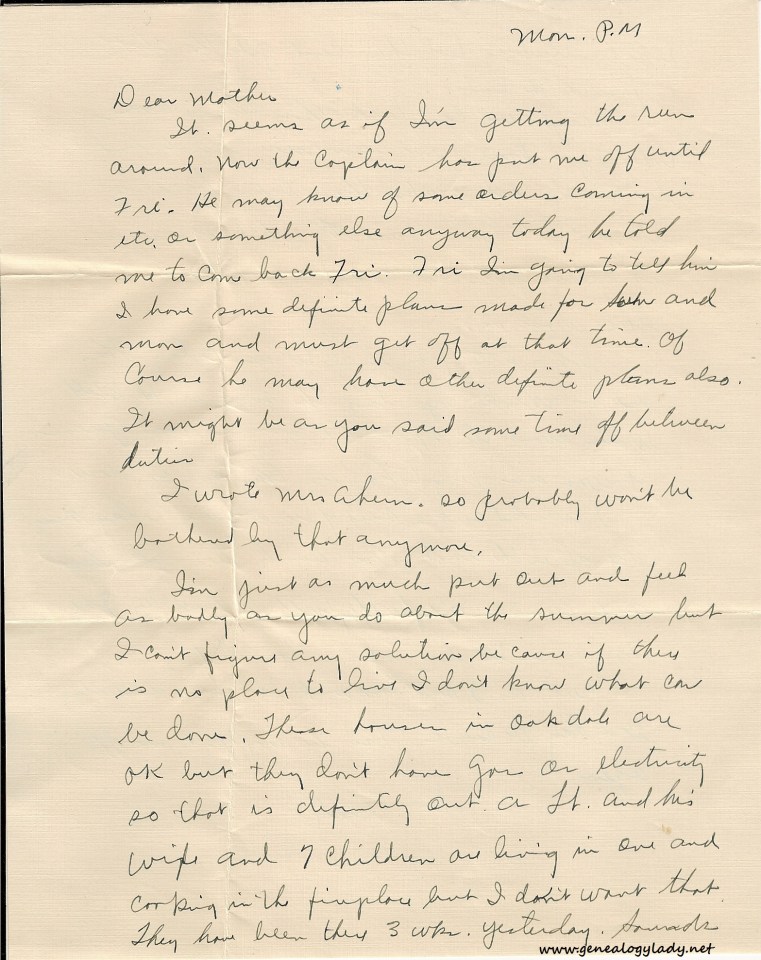 Mon. P.M
Dear Mother
It. seems as if I'm getting the run
around. Now the Captain has put me off until
Fri. He may know of some orders coming in
etc. or something else anyway today he told
me to come back Fri. Fri I'm going to tell him
I have some definite plans made for Sun and
mon and must get off at that time. Of
Course he may have other definite plans also.
It might be as you said some time off between
duties
I wrote Mrs Ahern. so probably won't be
bothered by that anymore.
I'm just as much put out and feel
as badly as you do about the summer but
I can't figure any solution because if there
is no place to live I don't know what can
be done. These houses in Oakdale are
OK but they don't have gas or electricity
so that is definitely out. a Lt. and his
wife and 7 children are living in one and
cooking in the fireplace but I don't want that.
They have been there 3 wks. yesterday. Sounds
www.genealogylady.net